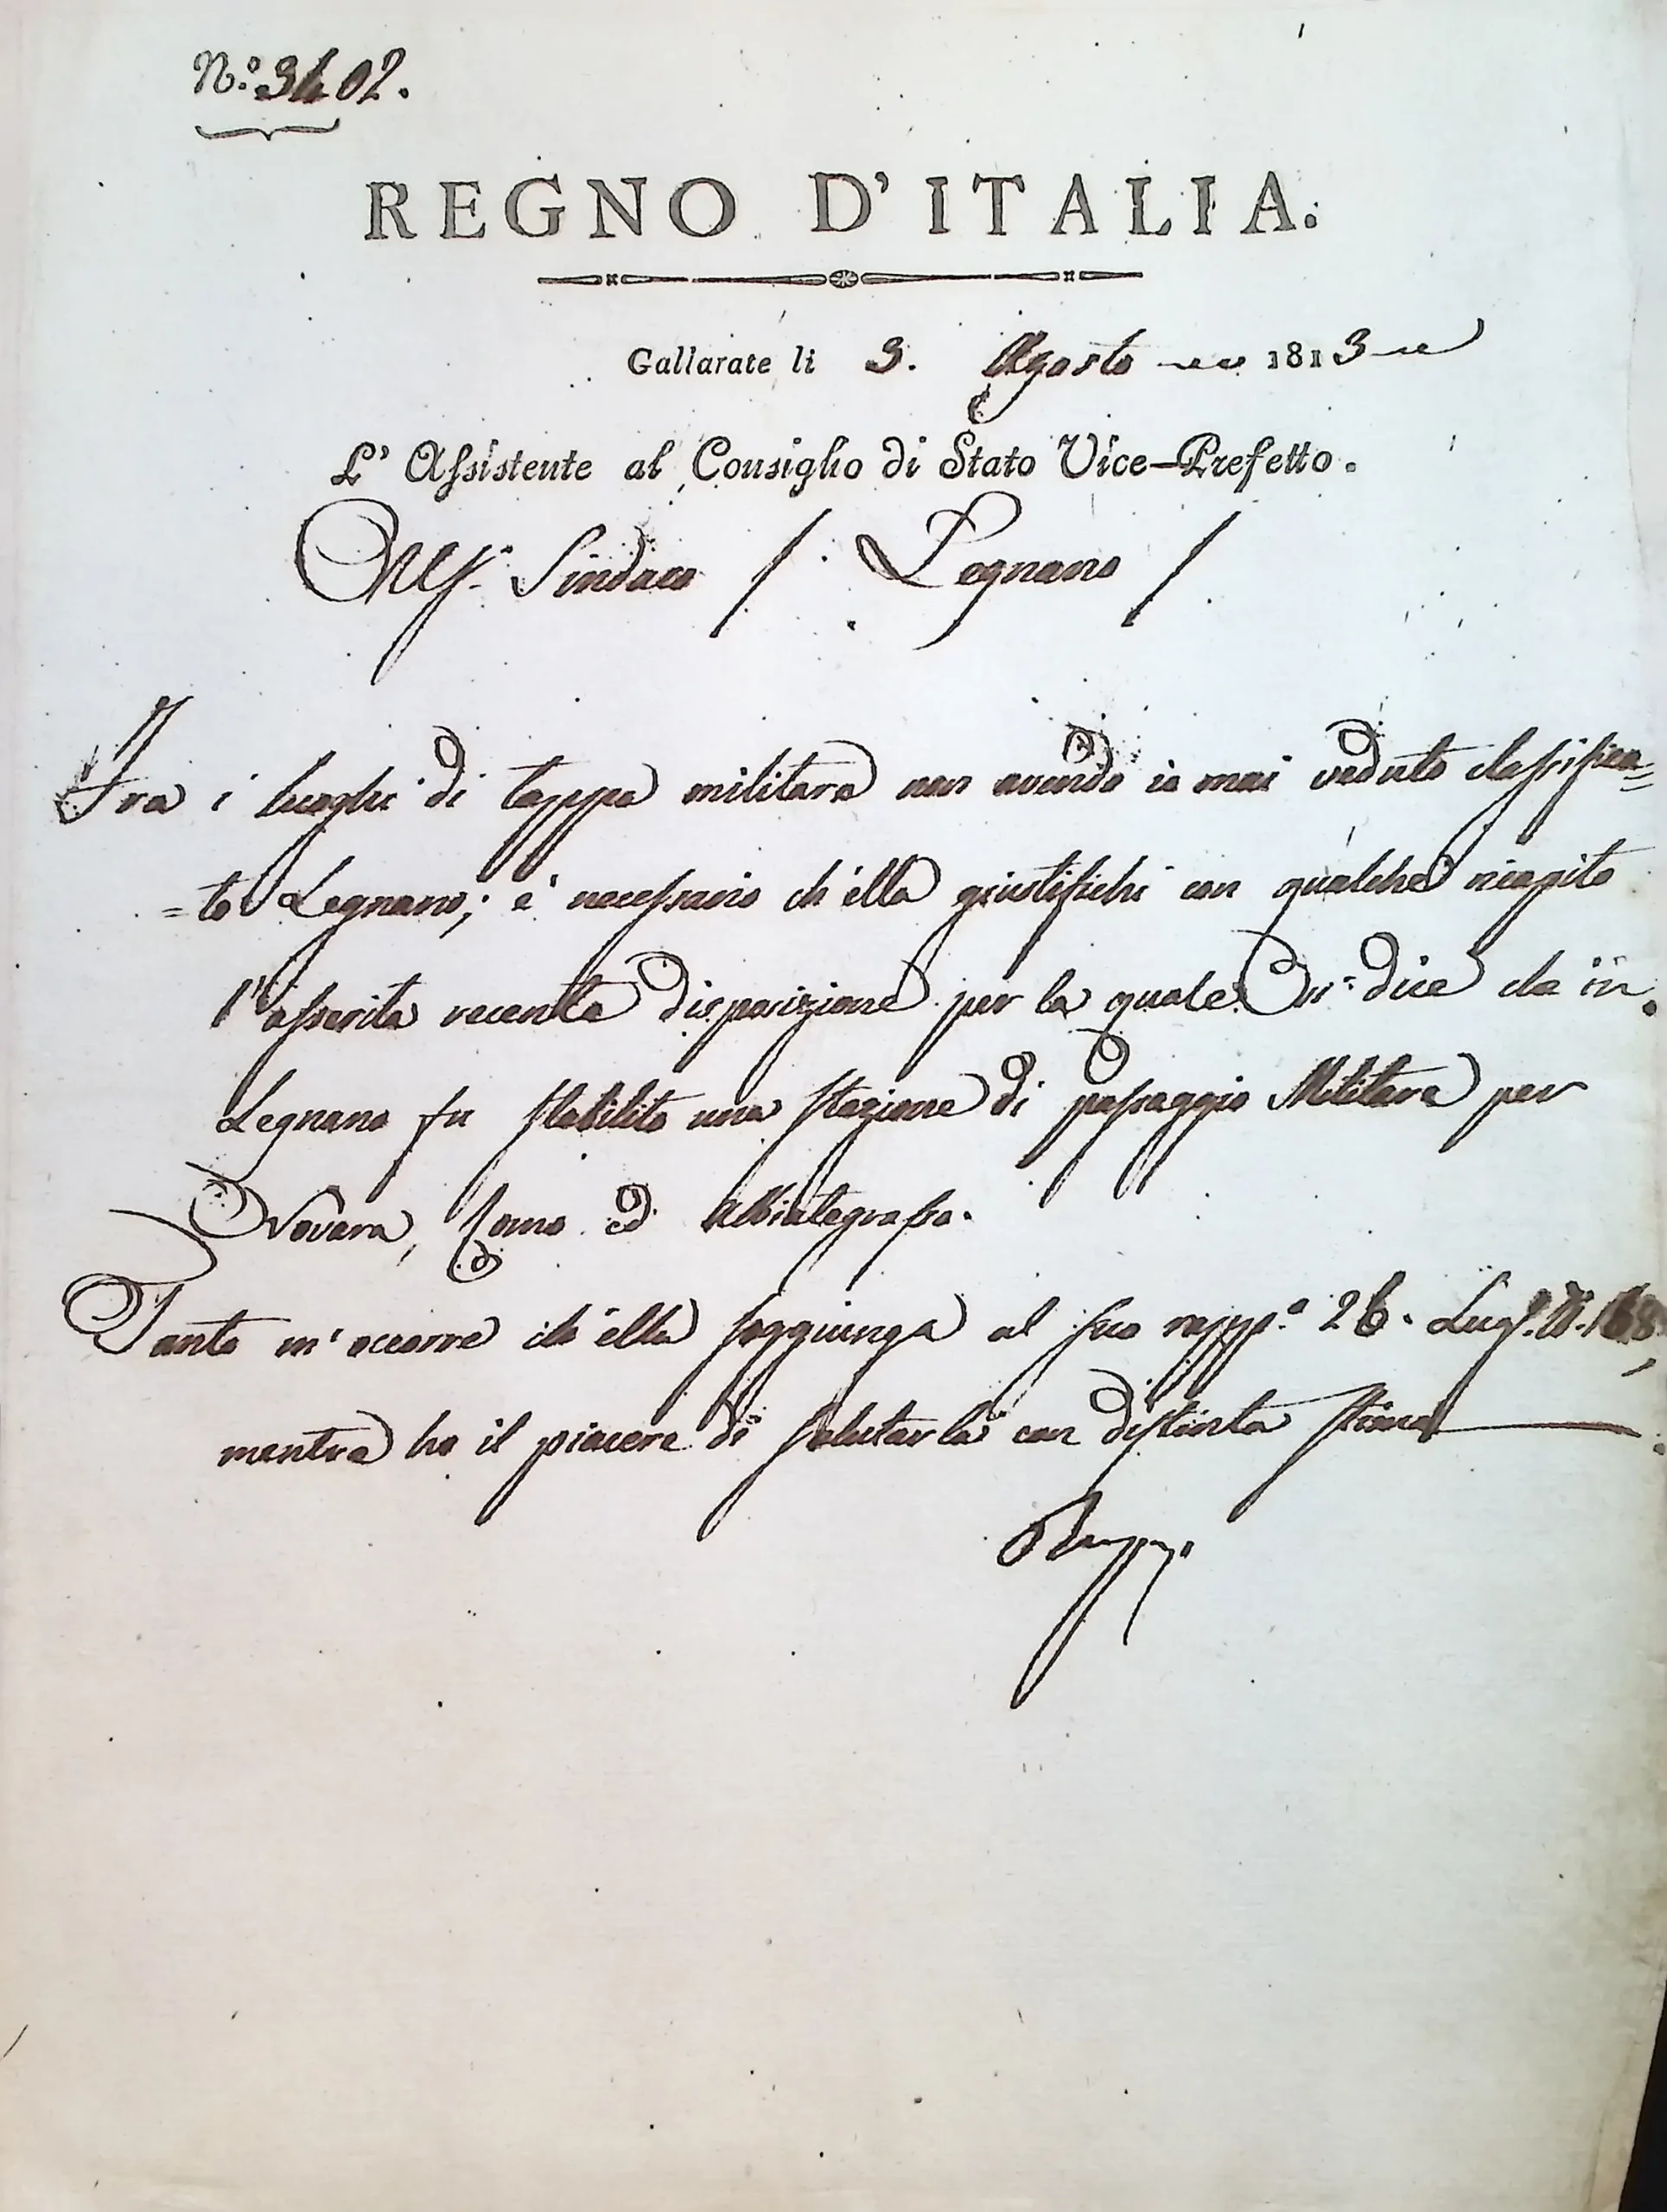 N.º 3402.
REGNO D'ITALIA.
Gallarate li 3. Agosto 1813
L' Assistente al Consiglio di Stato Vice-Prefetto.
Sindaco / Legnano /
Fra i luoghi di tappa militare non avendo io mai veduto classifica=
=to Legnano; è necessario ch'ella giustifichi con qualche ricapito
l'asserita recente disposizione per la quale si dice che in
Legnano fu stabilito una stazione di passaggio Militare per
Novara, Como ed Abbiategrasso.
Tanto m'occorre ch'ella soggiunga al suo rapp.º 26. Lug.º N. 168,
mentre ho il piacere di salutarla con distinta stima